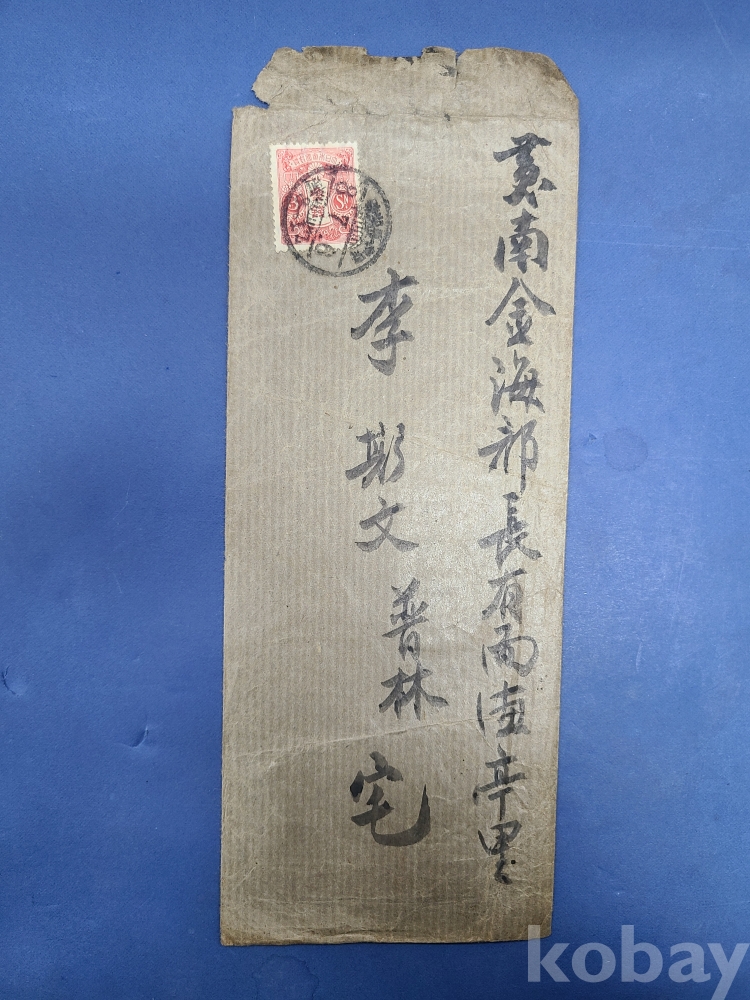 慶南金海郡長有面德亭里
李斯文 普林 宅
kobay